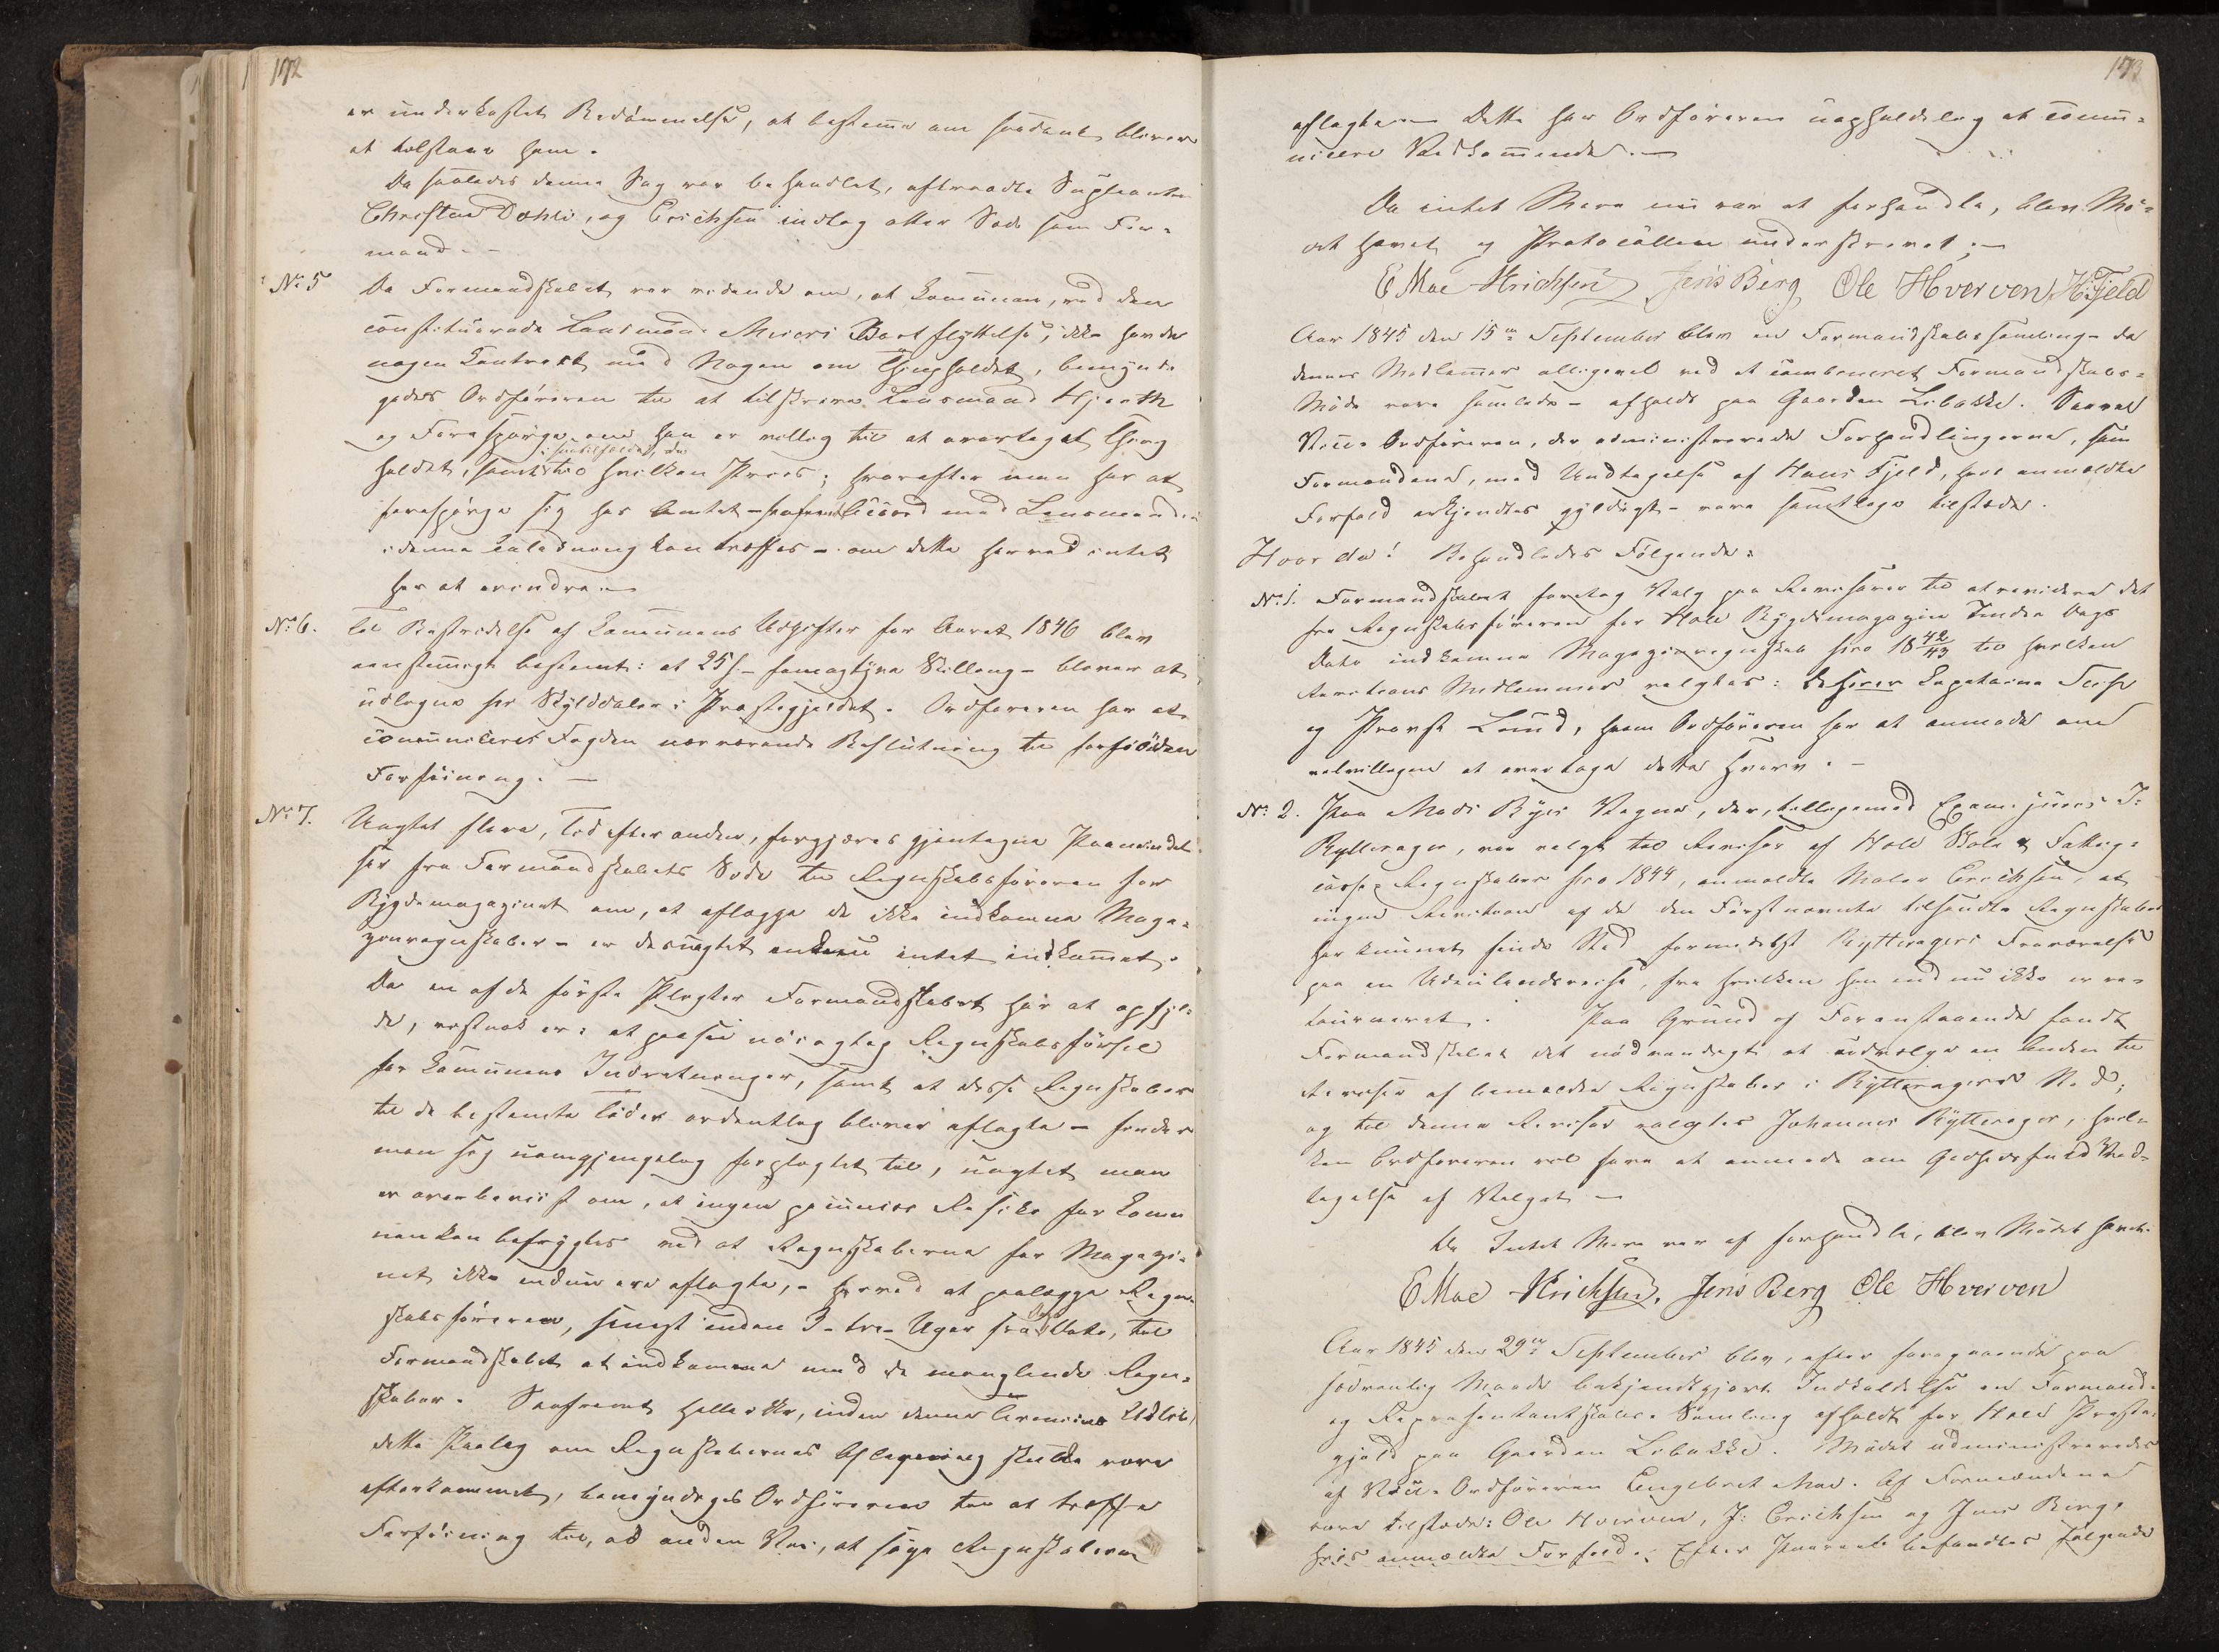 172
er underkastet Bedömmelse, at bestemme om saadant bliver
at tilstaae ham.
Da saaledes denne Sag var behandlet, aftraadte Supleanten
Christen Dæhli, og Erichsen indtog atter Sæde som For-
mand. —
No 5 Da Formandskabet var vidende om, at Communen, ved den
constituerede Lensmand Meiers Bortflyttelse, ikke havde
nogen Contract med Nogen om Thingholdet, bemyndi-
gedes Ordföreren til at tilskrive Lensmand Hjorth
og Forespörge, om han er villig til at overtage Thing-
i saatilfælde, da
holdet, samt til hvilken Priis; hvorefter man har at
forespörge sig hos Amtet – saafremt Accord med Lensmanden
i denne Anledning kan træffes – om dette herved intet
har at erindre. —
No 6. Til Bestridelse af Communens Udgifter for Aaret 1846 blev
eenstemmigt bestemt: at 25 s – femogtyve Skilling – bliver at
udligne per Skylddaler i Præstegjeldet. Ordföreren har at
communicere Fogden nærværende Beslutning til fornöden
Forföining. —
No 7. Uagtet flere, Tid efter anden, forgjæves gjentagne Paamindel-
ser fra Formandskabets Side til Regnskabsföreren for
Bygdemagazinet om, at aflægge de ikke indkomne Maga-
zinregnskaber – er desuagtet endnu intet indkommet.
Da en af de förste Pligter Formandskabet har at opfyl-
de, vistnok er: at paasee nöiagtig Regnskabsförsel
for Communens Indretninger, samt at disse Regnskaber
til de bestemte Tider ordentlig bliver aflagte – finder
man sig uomgjengelig forpligtet til, uagtet man
er overbeviist om, at ingen pecuniær Risiko for Commu-
nen kan befrygtes ved at Regnskaberne for Magazi-
net ikke endnu ere aflagte, – herved at paalægge Regn-
skabsföreren, senest inden 3 – tre – Uger fra Dato, til
Formandskabet at indkomme med de manglende Regn-
skaber. Saafremt heller ikke, inden denne Termins Udlöb,
dette Paalæg om Regnskabernes Aflevering skulde være
efterkommet, bemyndiges Ordföreren til at træffe
Forföining til, ad anden Vei, at söge Regnskaberne
173
aflagte. — Dette har Ordföreren uopholdelig at commu-
nicere Vedkommende. —
Da intet Mere nu var at forhandle, blev Mö-
det hævet og Protocollen underskrevet. —
E Moe Hrichsen Jens Berg Ole Hverven H. Fjeld
Aar 1845 den 15de September blev en Formandskabssamling – da
dennes Medlemmer alligevel ved et combineret Formandskabs-
Möde vare samlede – afholdt paa Gaarden Libakke. Saavel
Vice-Ordföreren, der administrerede Forhandlingerne, som
Formændene, med Undtagelse af Hans Fjeld, hvis anmeldte
Forfald erkjendtes gyldigt – vare samtlige tilstæde.
Hvorda! Behandledes Fölgende:
No 1. Formandskabet foretog Valg paa Revisorer til at revidere det
fra Regnskabsföreren for Hole Bygdemagazin Under Dags
Dato indkomne Magazinregnskab pro 1842/43 til hvilken
Revisions Medlemmer valgtes: DHerrer Capitaine
og Provst Lund, hvem Ordföreren har at anmode om
velvilligen at overtage dette Hverv. —
No 2. Paa Mads Byes Vegne, der, tilligemed Exam: juris J:
Rytterager, var valgt til Revisor af Hole Skole & Fattig-
casse-Regnskaber pro 1844, anmeldte Maler Erichsen, at
ingen Revision af de den Förstnævnte tilsendte Regnskaber
har kunnet finde Sted formedelst Rytteragers Fraværelse
paa en Udenlandsreise, fra hvilken han endnu ikke er re-
tourneret. Paa Grund af Foranstaaende fandt
Formandskabet det nödvendigt at udvælge en Anden til
Revisor af bemeldte Regnskaber i Rytteragers Sted;
og til denne Revisor valgtes Johannes Rytterager, hvil-
ken Ordföreren vil have at anmode om Godhedsfuld Mod-
tagelse af Valget. —
Da Intet Mere var at forhandle, blev Mödet hævet.
E Moe Hrichsen, Jens Berg Ole Hverven
Aar 1845 den 29de September blev, efter foregaaende paa
sædvanlig Maade bekjendtgjort Indkaldelse en Formand-
og Repræsentantskabs-Samling afholdt for Hole Præste-
gjeld paa Gaarden Libakke. Mödet administreredes
af Vice-Ordföreren Engebret Moe. Af Formændene
vare tilstæde: Ole Hverven, J: Erichsen og Jens Berg,
anmeldte Forfald. Efter befandtes fölgende